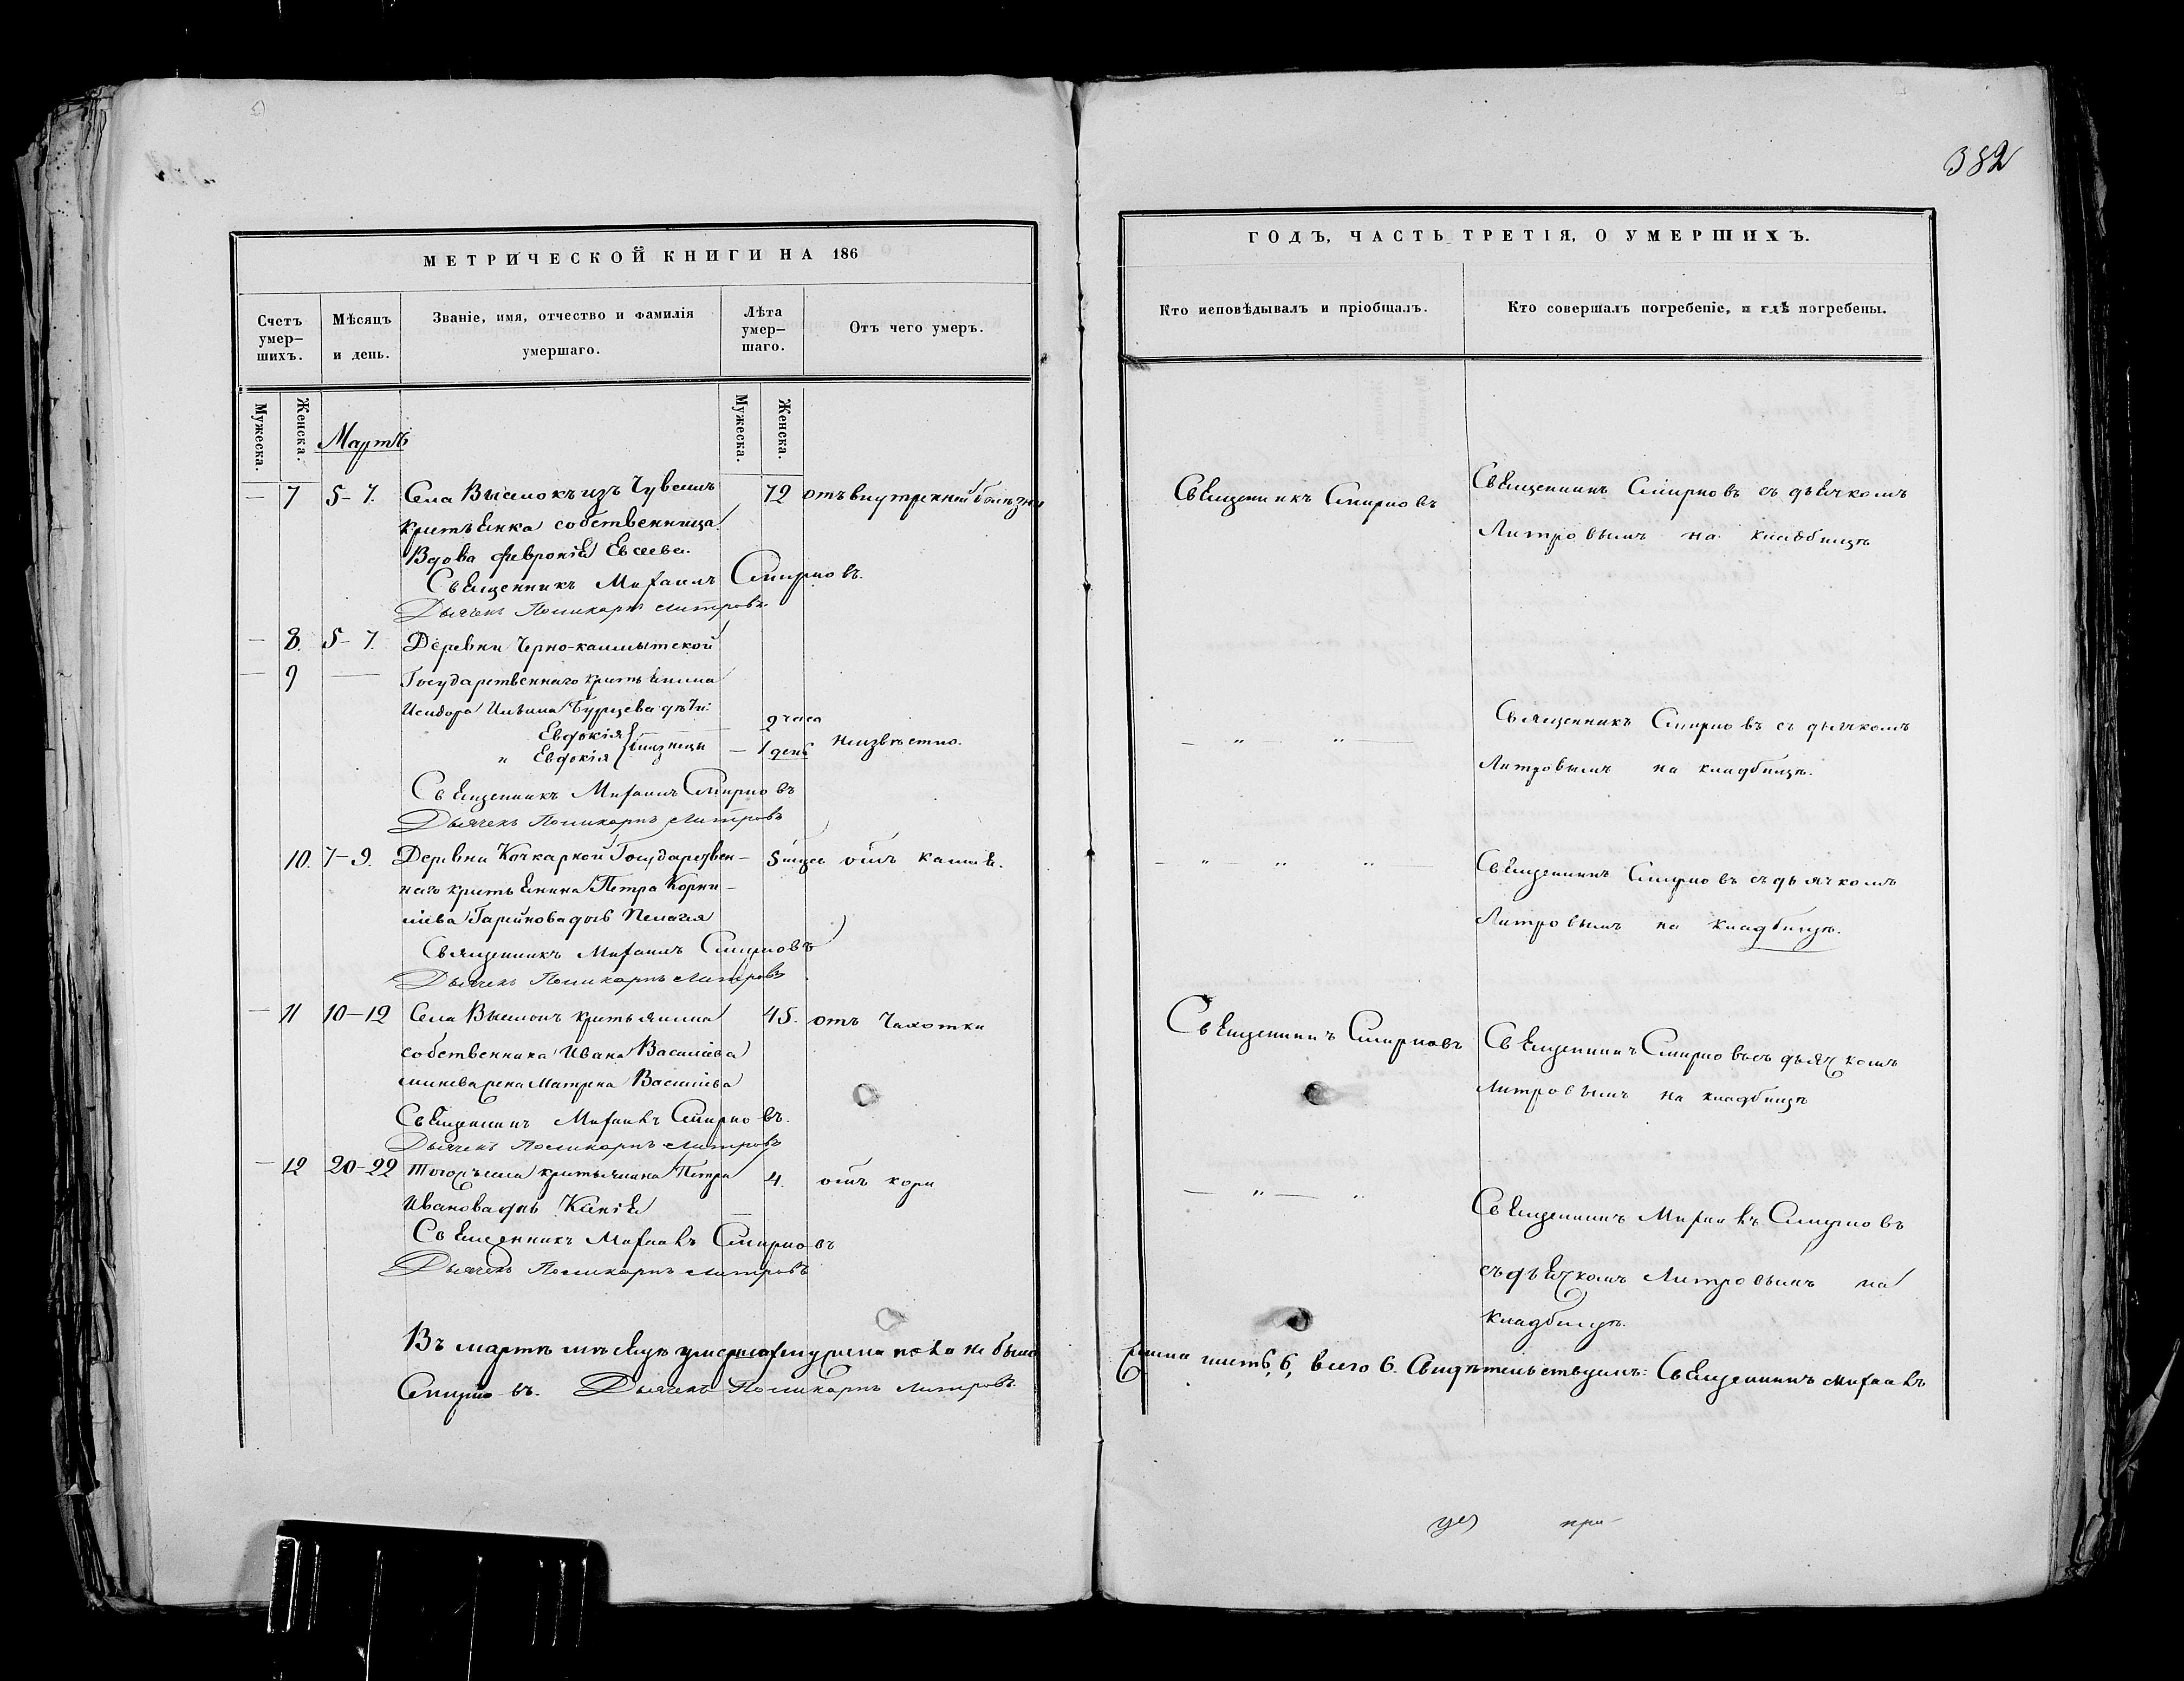 382
МЕТРИЧЕСКОЙ КНИГИ НА 186
Счетъ умер-
шихъ.
Мѣсяцъ
и день.
Званіе, имя, отчество и фамилія
умершаго.
Лѣта
умер-
шаго.
Отъ чего умеръ.
Мужеска.
Женска.
Мужеска.
Женска.
Мартъ
— 7 5-7. Села Высмокъ изъ Чувашъ 72 отъ внутренней болѣзни
крестьянка собственница
Вдова Февронія Евсеева.
Священникъ Михаилъ Смирновъ.
Дьячекъ Поликарпъ Литровъ
— 8. 5-7. Деревни Черно-
— 9 — Государственнаго крестьянина
Исидора Ильина дѣти:
Евдокія 2 часа
и Евдокія близнецы — 1 день неизвѣстно.
Священникъ Михаилъ Смирновъ
Дьячекъ Поликарпъ Литровъ
10. 7-9. Деревни Кочкаркой Государствен- 5 отъ кашля.
наго крестьянина Петра Корни-
лiева дочь Пелагея
Священникъ Михаилъ Смирновъ
Дьячекъ Поликарпъ Литровъ
— 11 10-12 Села крестьянина 45. отъ чахотки
собственника Ивана Васильева
жена Матрена Васильева
Священникъ Михаилъ Смирновъ.
Дьячекъ Поликарпъ Литровъ
— 12 20-22 Тогожъ села крестьянина Петра 4. отъ кори
Иванова дочь Ксенія
Священникъ Михаилъ Смирновъ
Дьячекъ Поликарпъ Литровъ
Въ мартѣ мѣсяцѣ умершихъ пола не было
Смирновъ. Дьячекъ Поликарпъ Литровъ.
ГОДЪ, ЧАСТЬ ТРЕТІЯ, О УМЕРШИХЪ.
Кто исповѣдывалъ и пріобщалъ.
Кто совершалъ погребеніе, и гдѣ погребены.
Священникъ Смирновъ
Священникъ Смирновъ съ дьячкомъ
Литровымъ на кладбищѣ
— „ „ —
Священникъ Смирновъ съ дьячкомъ
Литровымъ на кладбищѣ.
— „ „ „
Священникъ Смирновъ съ дьячкомъ
Литровымъ на кладбищѣ.
Священникъ Смирновъ
Священникъ Смирновъ съ дьячкомъ
Литровымъ на кладбищѣ
— „ — „
Священникъ Михаилъ Смирновъ
съ дьячкомъ Литровымъ на
кладбищѣ.
шесть 6, всего 6. Свидѣтельствуемъ: Священникъ Михаилъ